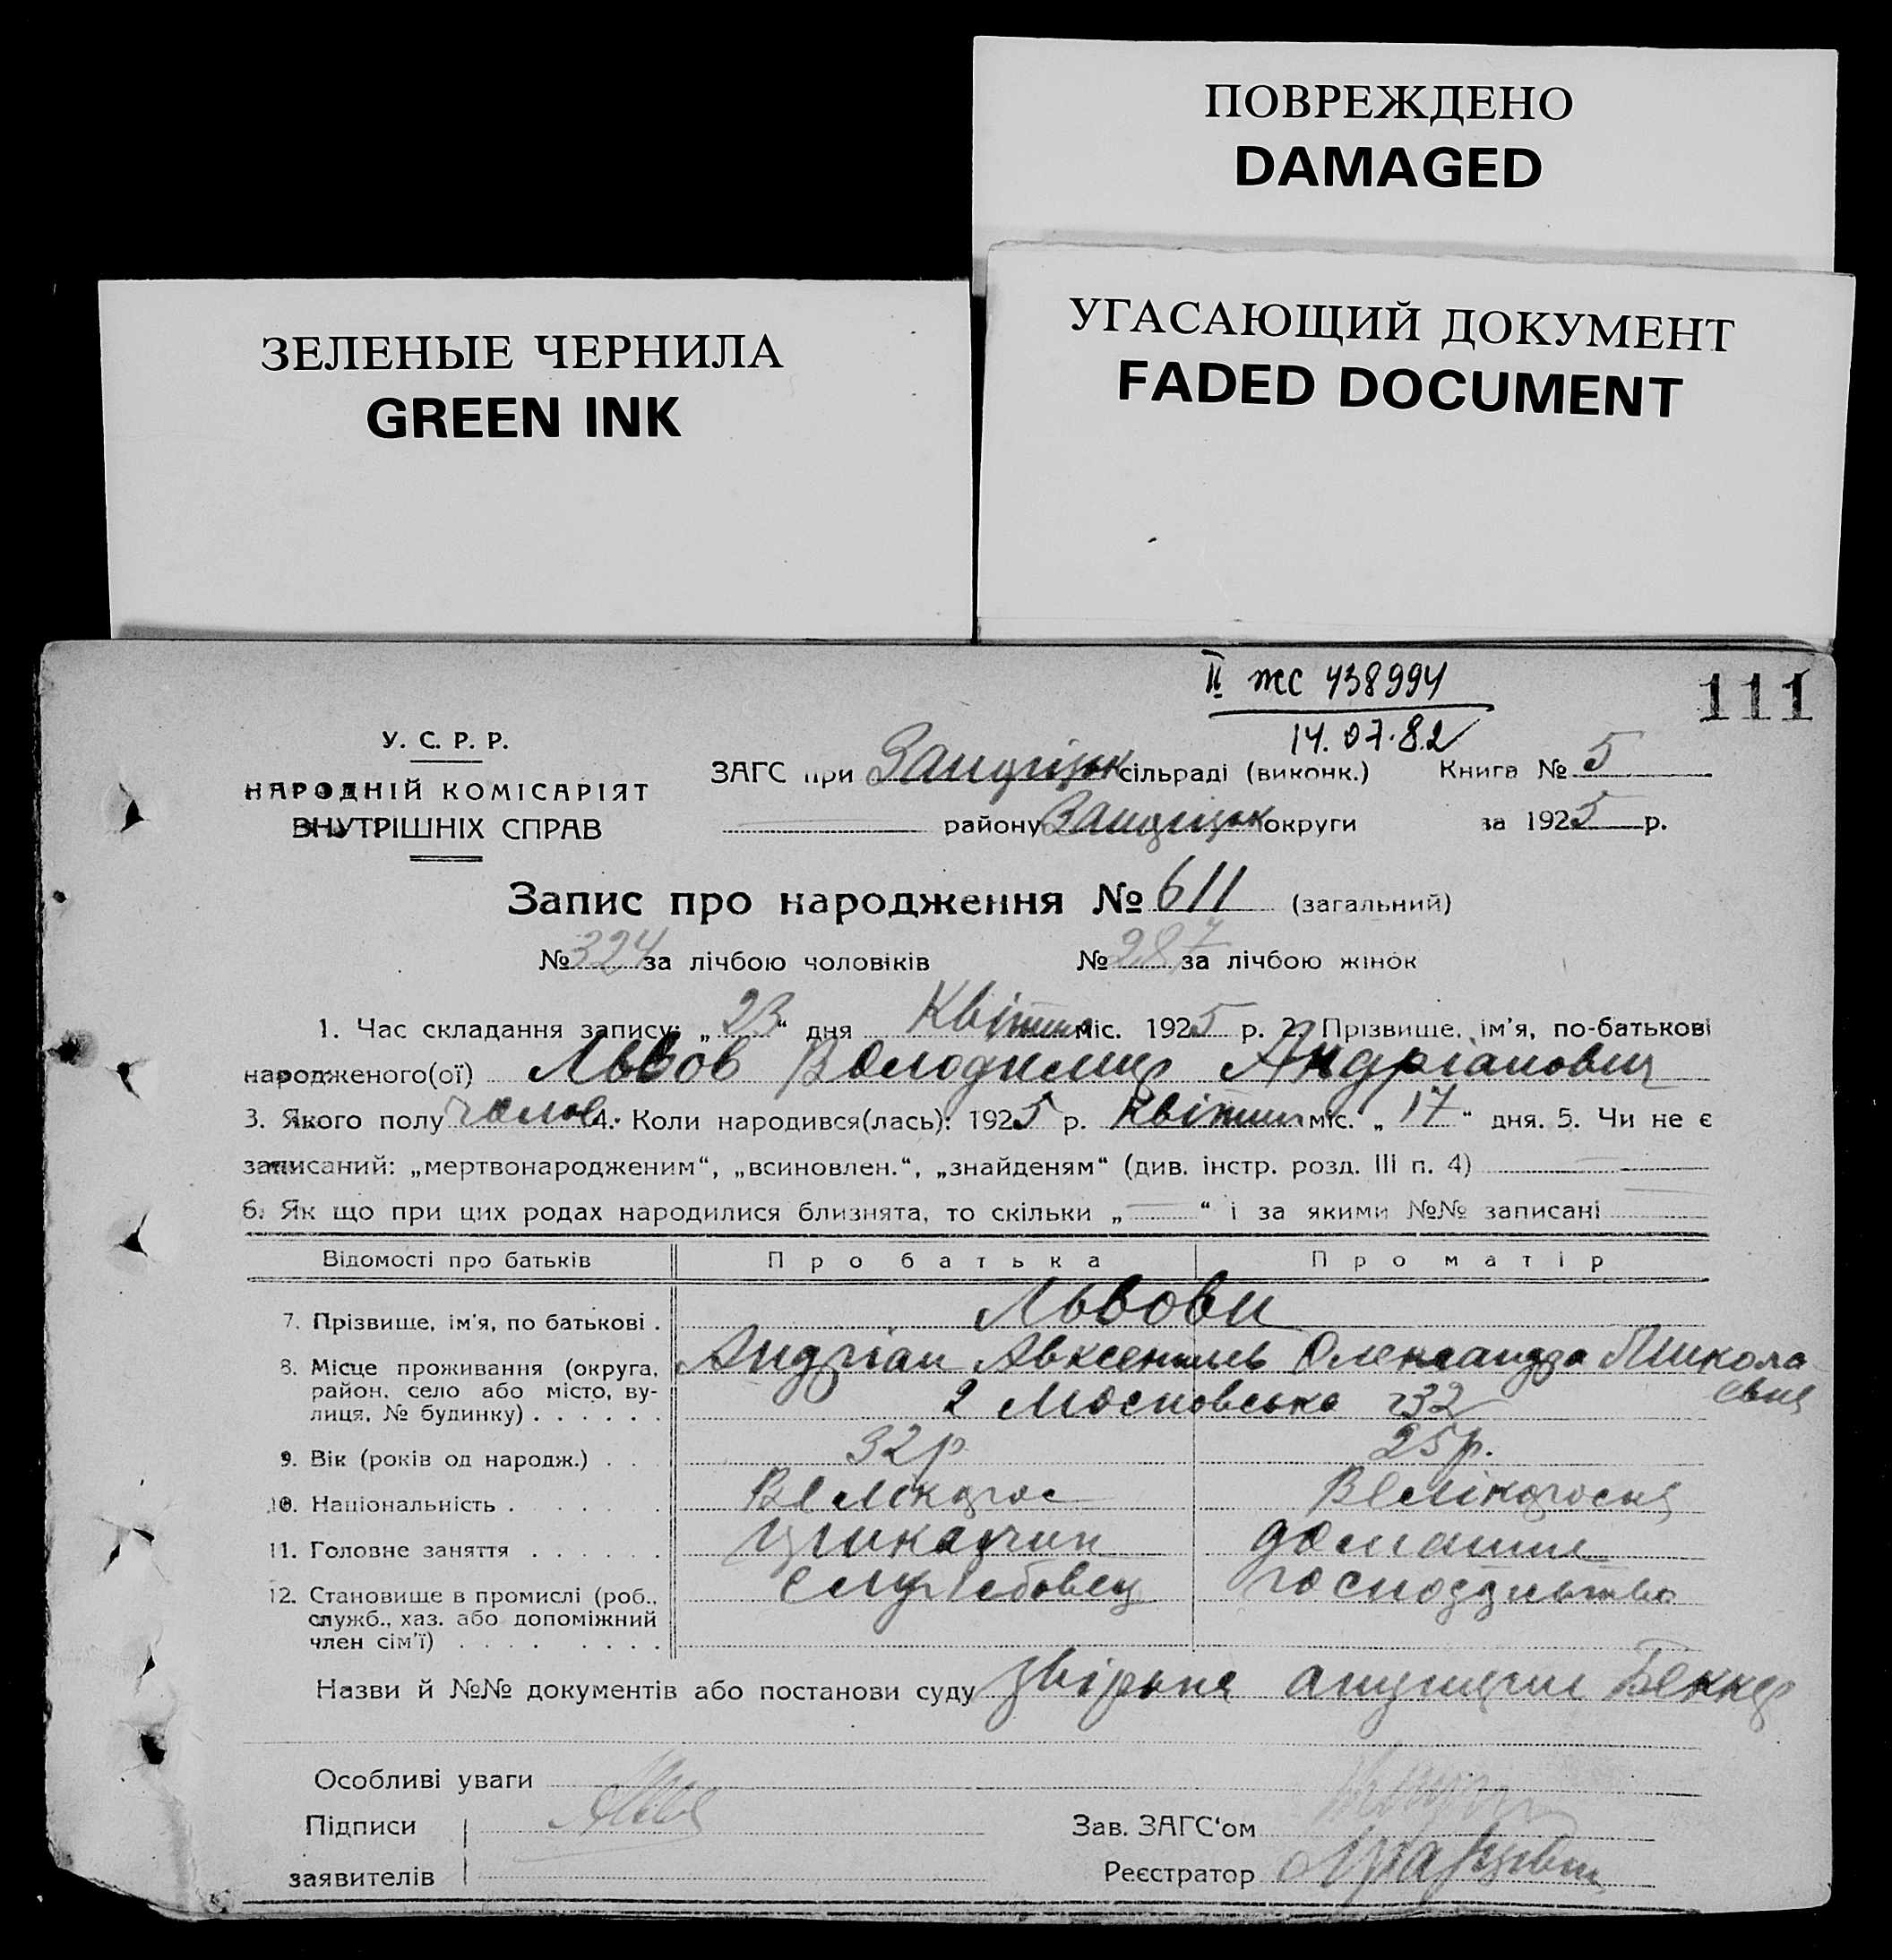 ПОВРЕЖДЕНО
DAMAGED
ЗЕЛЕНЫЕ ЧЕРНИЛА
GREEN INK
УГАСАЮЩИЙ ДОКУМЕНТ
FADED DOCUMENT
II ЖС 438994
14.07.82
111
У. С. Р. Р.
НАРОДНІЙ КОМІСАРІЯТ
ВНУТРІШНІХ СПРАВ
ЗАГС при сільраді (виконк.) Книга № 5
району округи за 1925 р.
Запис про народження № 611 (загальний)
№ 324 за лічбою чоловіків № 287 за лічбою жінок
1. Час складання запису: „23“ дня Квітня міс. 1925 р. 2. Прізвище, ім'я, по-батькові
народженого(ої) Львов Володимир Андріанович
3. Якого полу чолов. 4. Коли народився(лась): 1925 р. Квітня міс. „17“ дня. 5. Чи не є
записаний: „мертвонародженим“, „всиновлен.“, „знайденям“ (див. інстр. розд. III п. 4)
6. Як що при цих родах народилися близнята, то скільки „—“ і за якими №№ записані
Відомості про батьків Про батька Про матір
7. Прізвище, ім'я, по батькові . Львови
Андріан Авксентьев Олександра Микола
евна
8. Місце проживання (округа,
район, село або місто, ву-
лиця, № будинку) . . . . . . 2 Московська 232
9. Вік (років од народж.) . . . 32 р. 25 р.
10. Національність . . . . . . Велікорос Велікороска
11. Головне заняття . . . . . . домашнє
12. Становище в промислі (роб.,
служб., хаз. або допоміжний
член сім'ї) . . . . . . . . Службовец господарство
Назви й №№ документів або постанови суду Беккер
Особливі уваги
Підписи
заявителів
Зав. ЗАГС'ом
Реєстратор